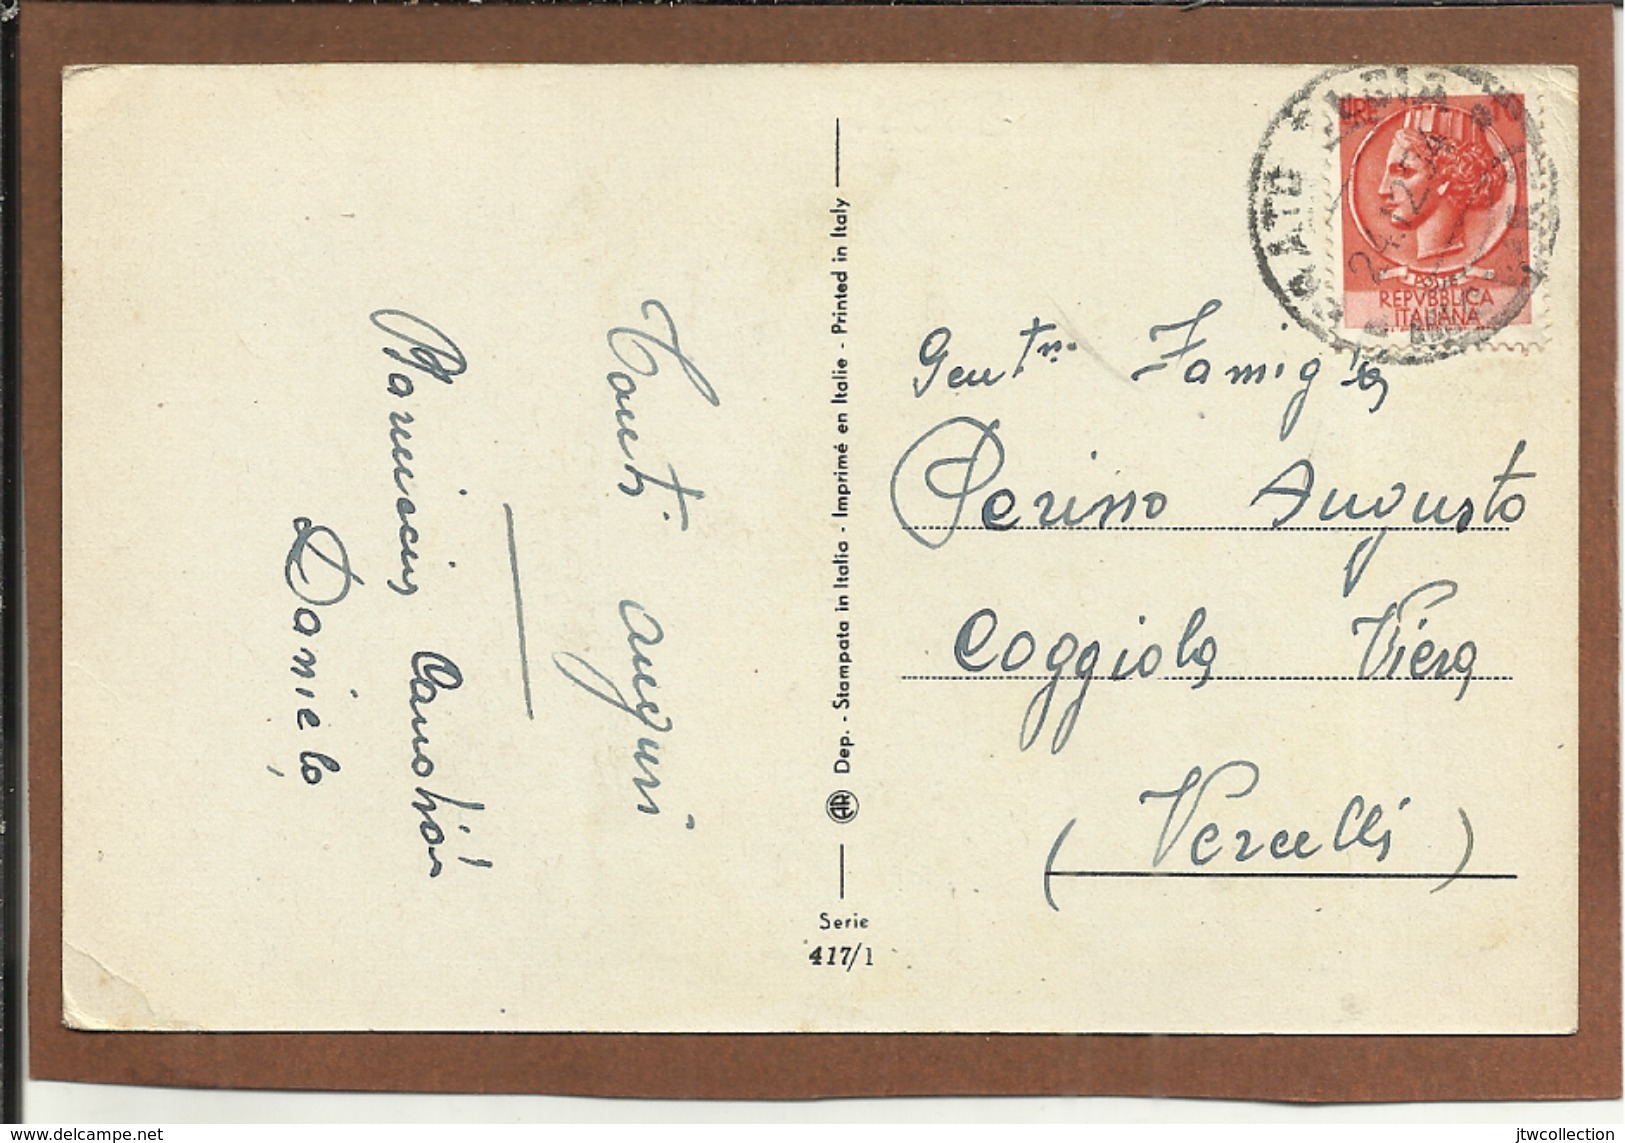 Tanti auguri
Daniela
Dep. - Stampata in Italia - Imprimé en Italie - Printed in Italy
Serie
417/1
LIRE
24.12.54
POSTE
REPVBBLICA
ITALIANA
Gent.me Famiglia
Perino Augusto
Coggiola Viera
(Vercelli)
delcampe.net
jtwcollection